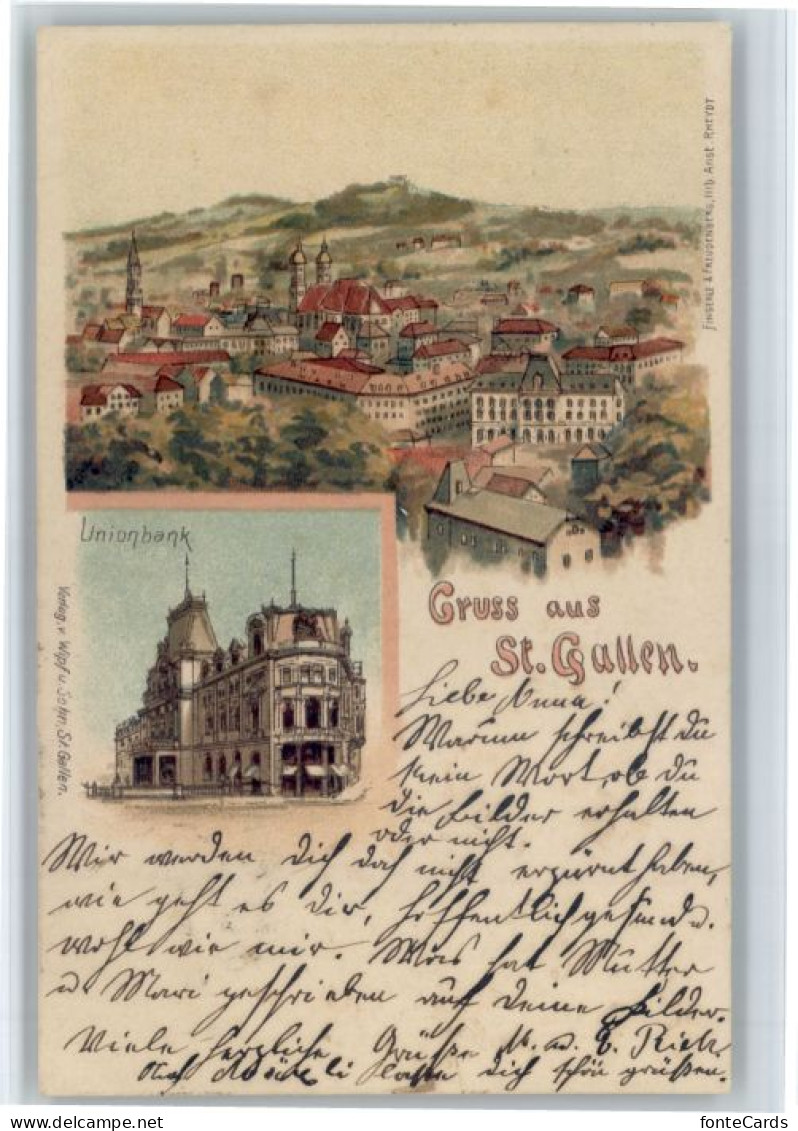 FINGERLE & FREUDENBERG, lith. Anst. RHEYDT
Unionbank
Verlag v. Wipf u. Sohn, St. Gallen.
Gruss aus
St. Gallen.
Liebe Anna!
Warum schreibst du
kein Wort, ob du
die Bilder erhalten
oder nicht.
Wir werden dich doch nicht erzürnt haben,
wie geht es dir, hoffentlich gesund u.
wohl wie mir. Was hat Mutter
u. Mari geschrieben auf deine Bilder.
Viele herzliche Grüsse M. u. E. Rich.
lasse dich schön grüßen.
fonteCards